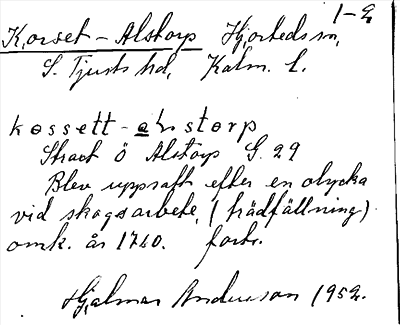 1-2
Korset - Alstorp Hjorteds sn,
S. Tjusts hd, Kalm. l.
kossett - alstorp
Strax Ö Alstorp G. 29
Blev uppsatt efter en olycka
vid skogsarbete, (trädfällning)
omk. år 1740. forts.
Hjalmar Andersson 1952.